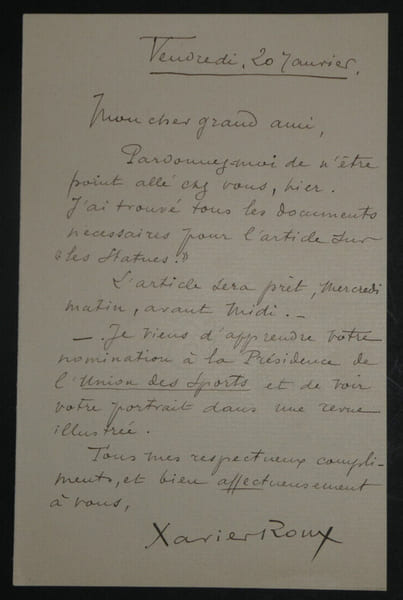 Vendredi, 20 Janvier.
Mon cher grand ami,
Pardonnez-moi de n'être
point allé chez vous, hier.
J'ai trouvé tous les documents
nécessaires pour l'article sur
"les Statues."
L'article sera prêt, Mercredi
matin, avant Midi. —
— Je viens d'apprendre votre
nomination à la Présidence de
l'Union des Sports et de voir
votre portrait dans une revue
illustrée.
Tous mes respectueux compli-
ments, et bien affectueusement
à vous,
Xavier Roux